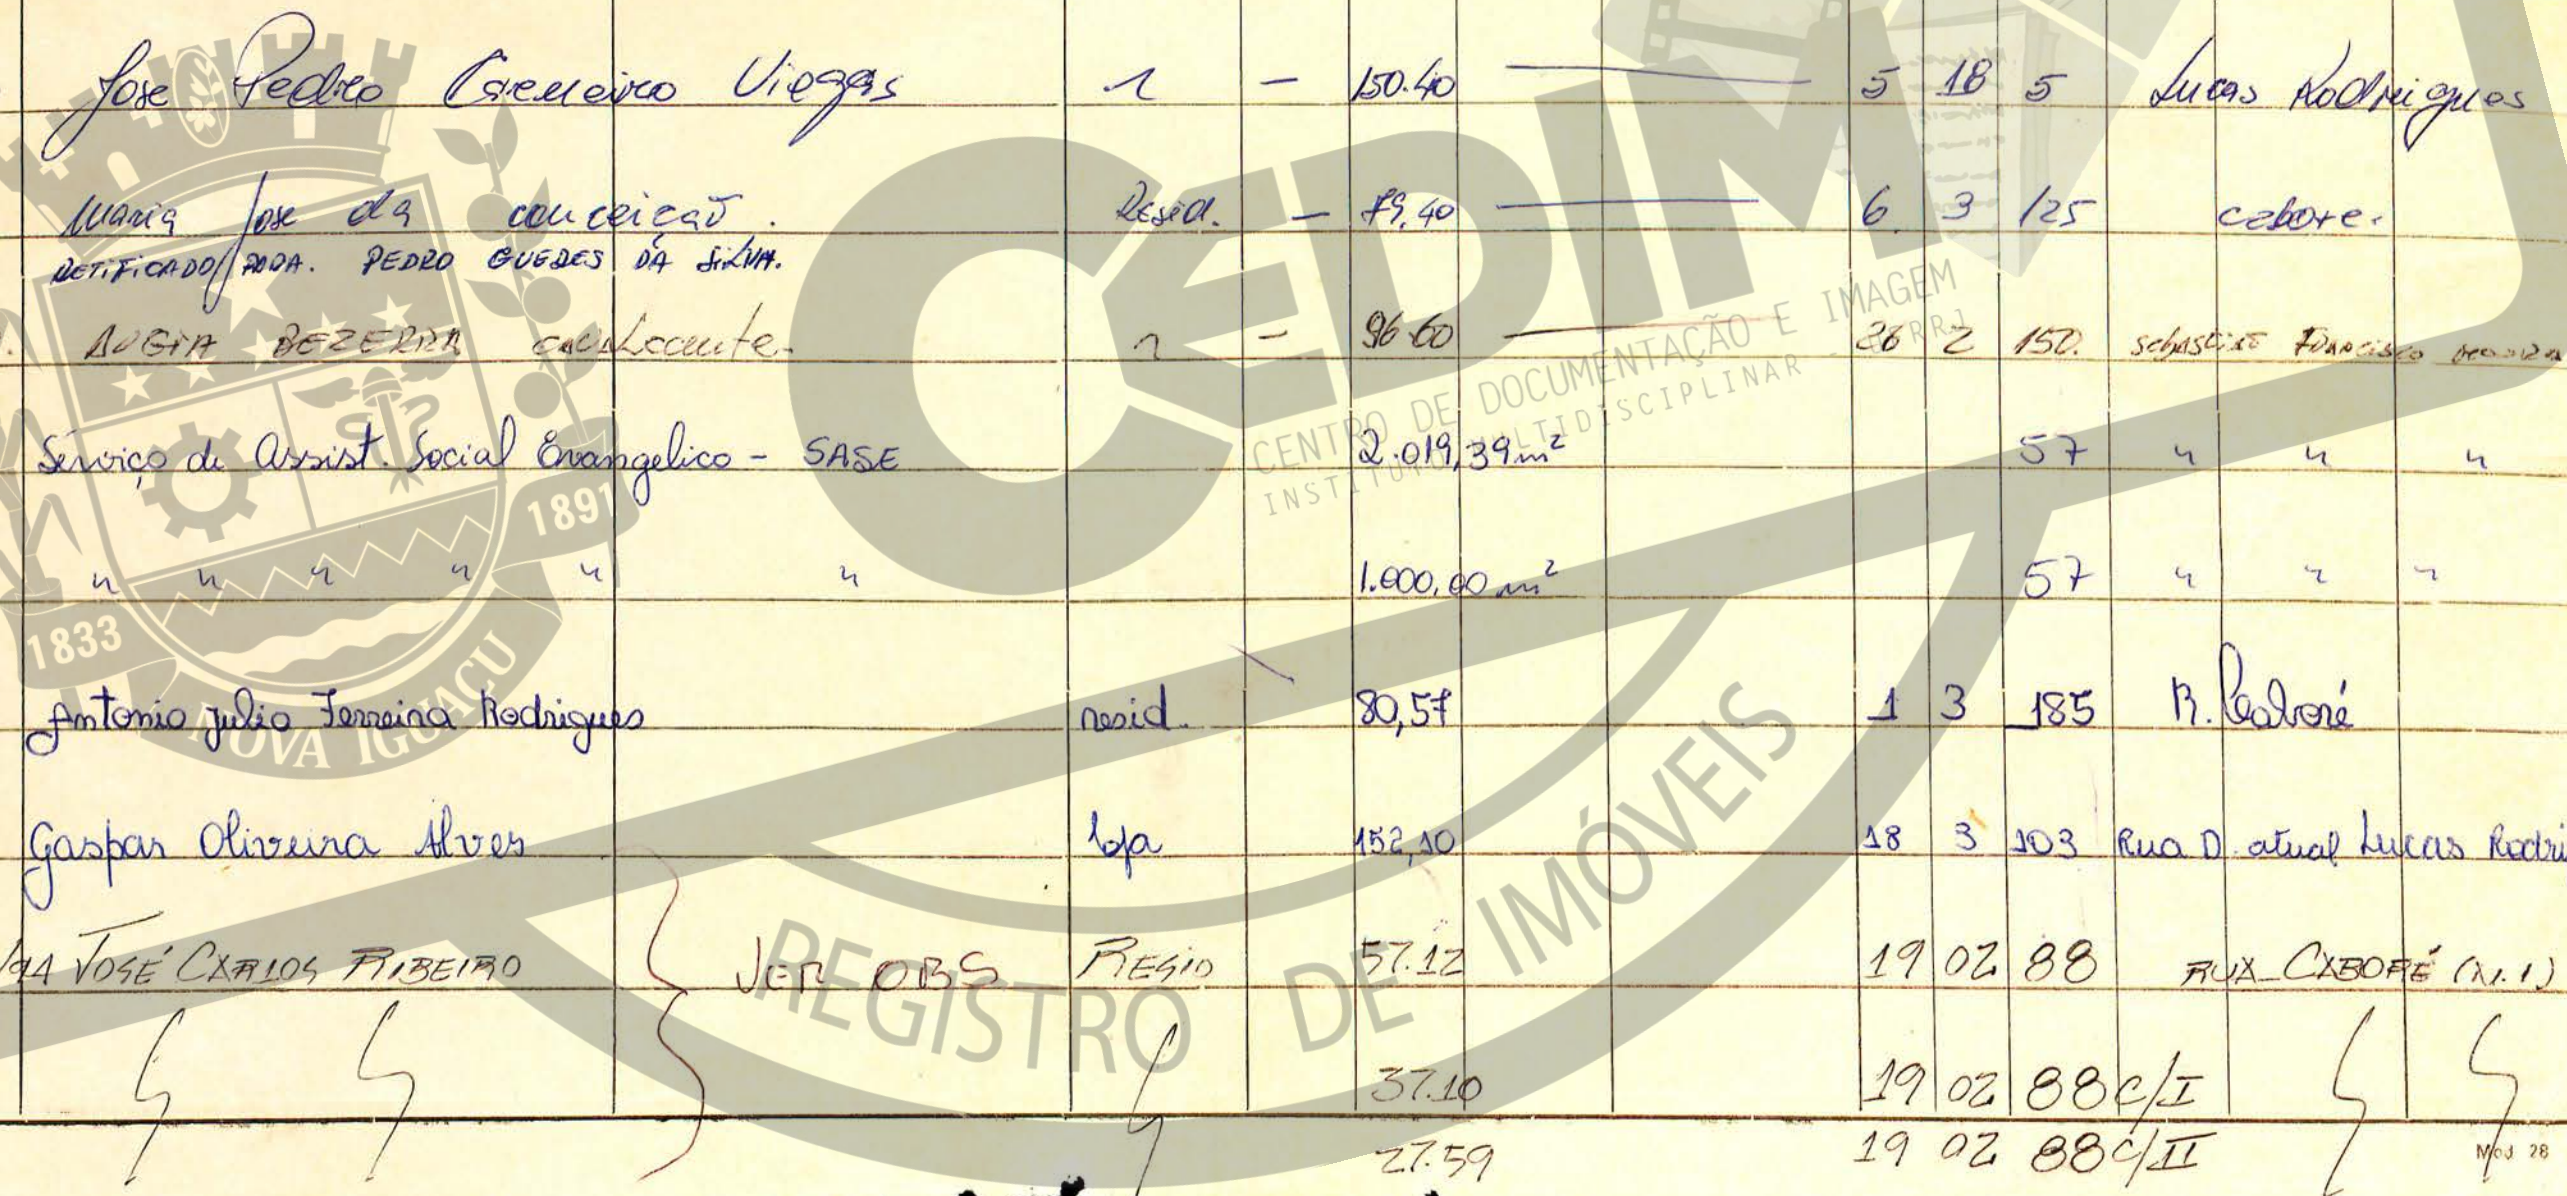 Jose Pedro Carneiro Viegas 1 - 150.40 5 18 5 Lucas Rodrigues
Maria Jose da conceicaõ. Resid. - 79,40 6 3 125 cabore.
RETIFICADO PARA. PEDRO GUEDES DA SILVA.
BEZERRA cavalcante - 96.60 26 2 150. sebastiaõ Francisco
Serviço de Assist. Social Evangelico - SASE 2.019,39 m² 57 " " "
" " " " " " 1.000,00 m² 57 " " "
Antonio Julio Ferreira Rodrigues resid. 80,57 1 3 185 R. Caboré
Gaspar Oliveira Alves loja 152,10 18 3 103 Rua D. atual Lucas Rodri
/94 JOSÉ CARLOS RIBEIRO VER OBS RESID 57.12 19 02 88 RUA CABORÉ (N.I)
37.10 19 02 88 C/I
27.59 19 02 88 C/II
Mod 28
1833
1891
NOVA IGUAÇU
CEDIM
CENTRO DE DOCUMENTAÇÃO E IMAGEM
INSTITUTO MULTIDISCIPLINAR UFRRJ
REGISTRO DE IMÓVEIS